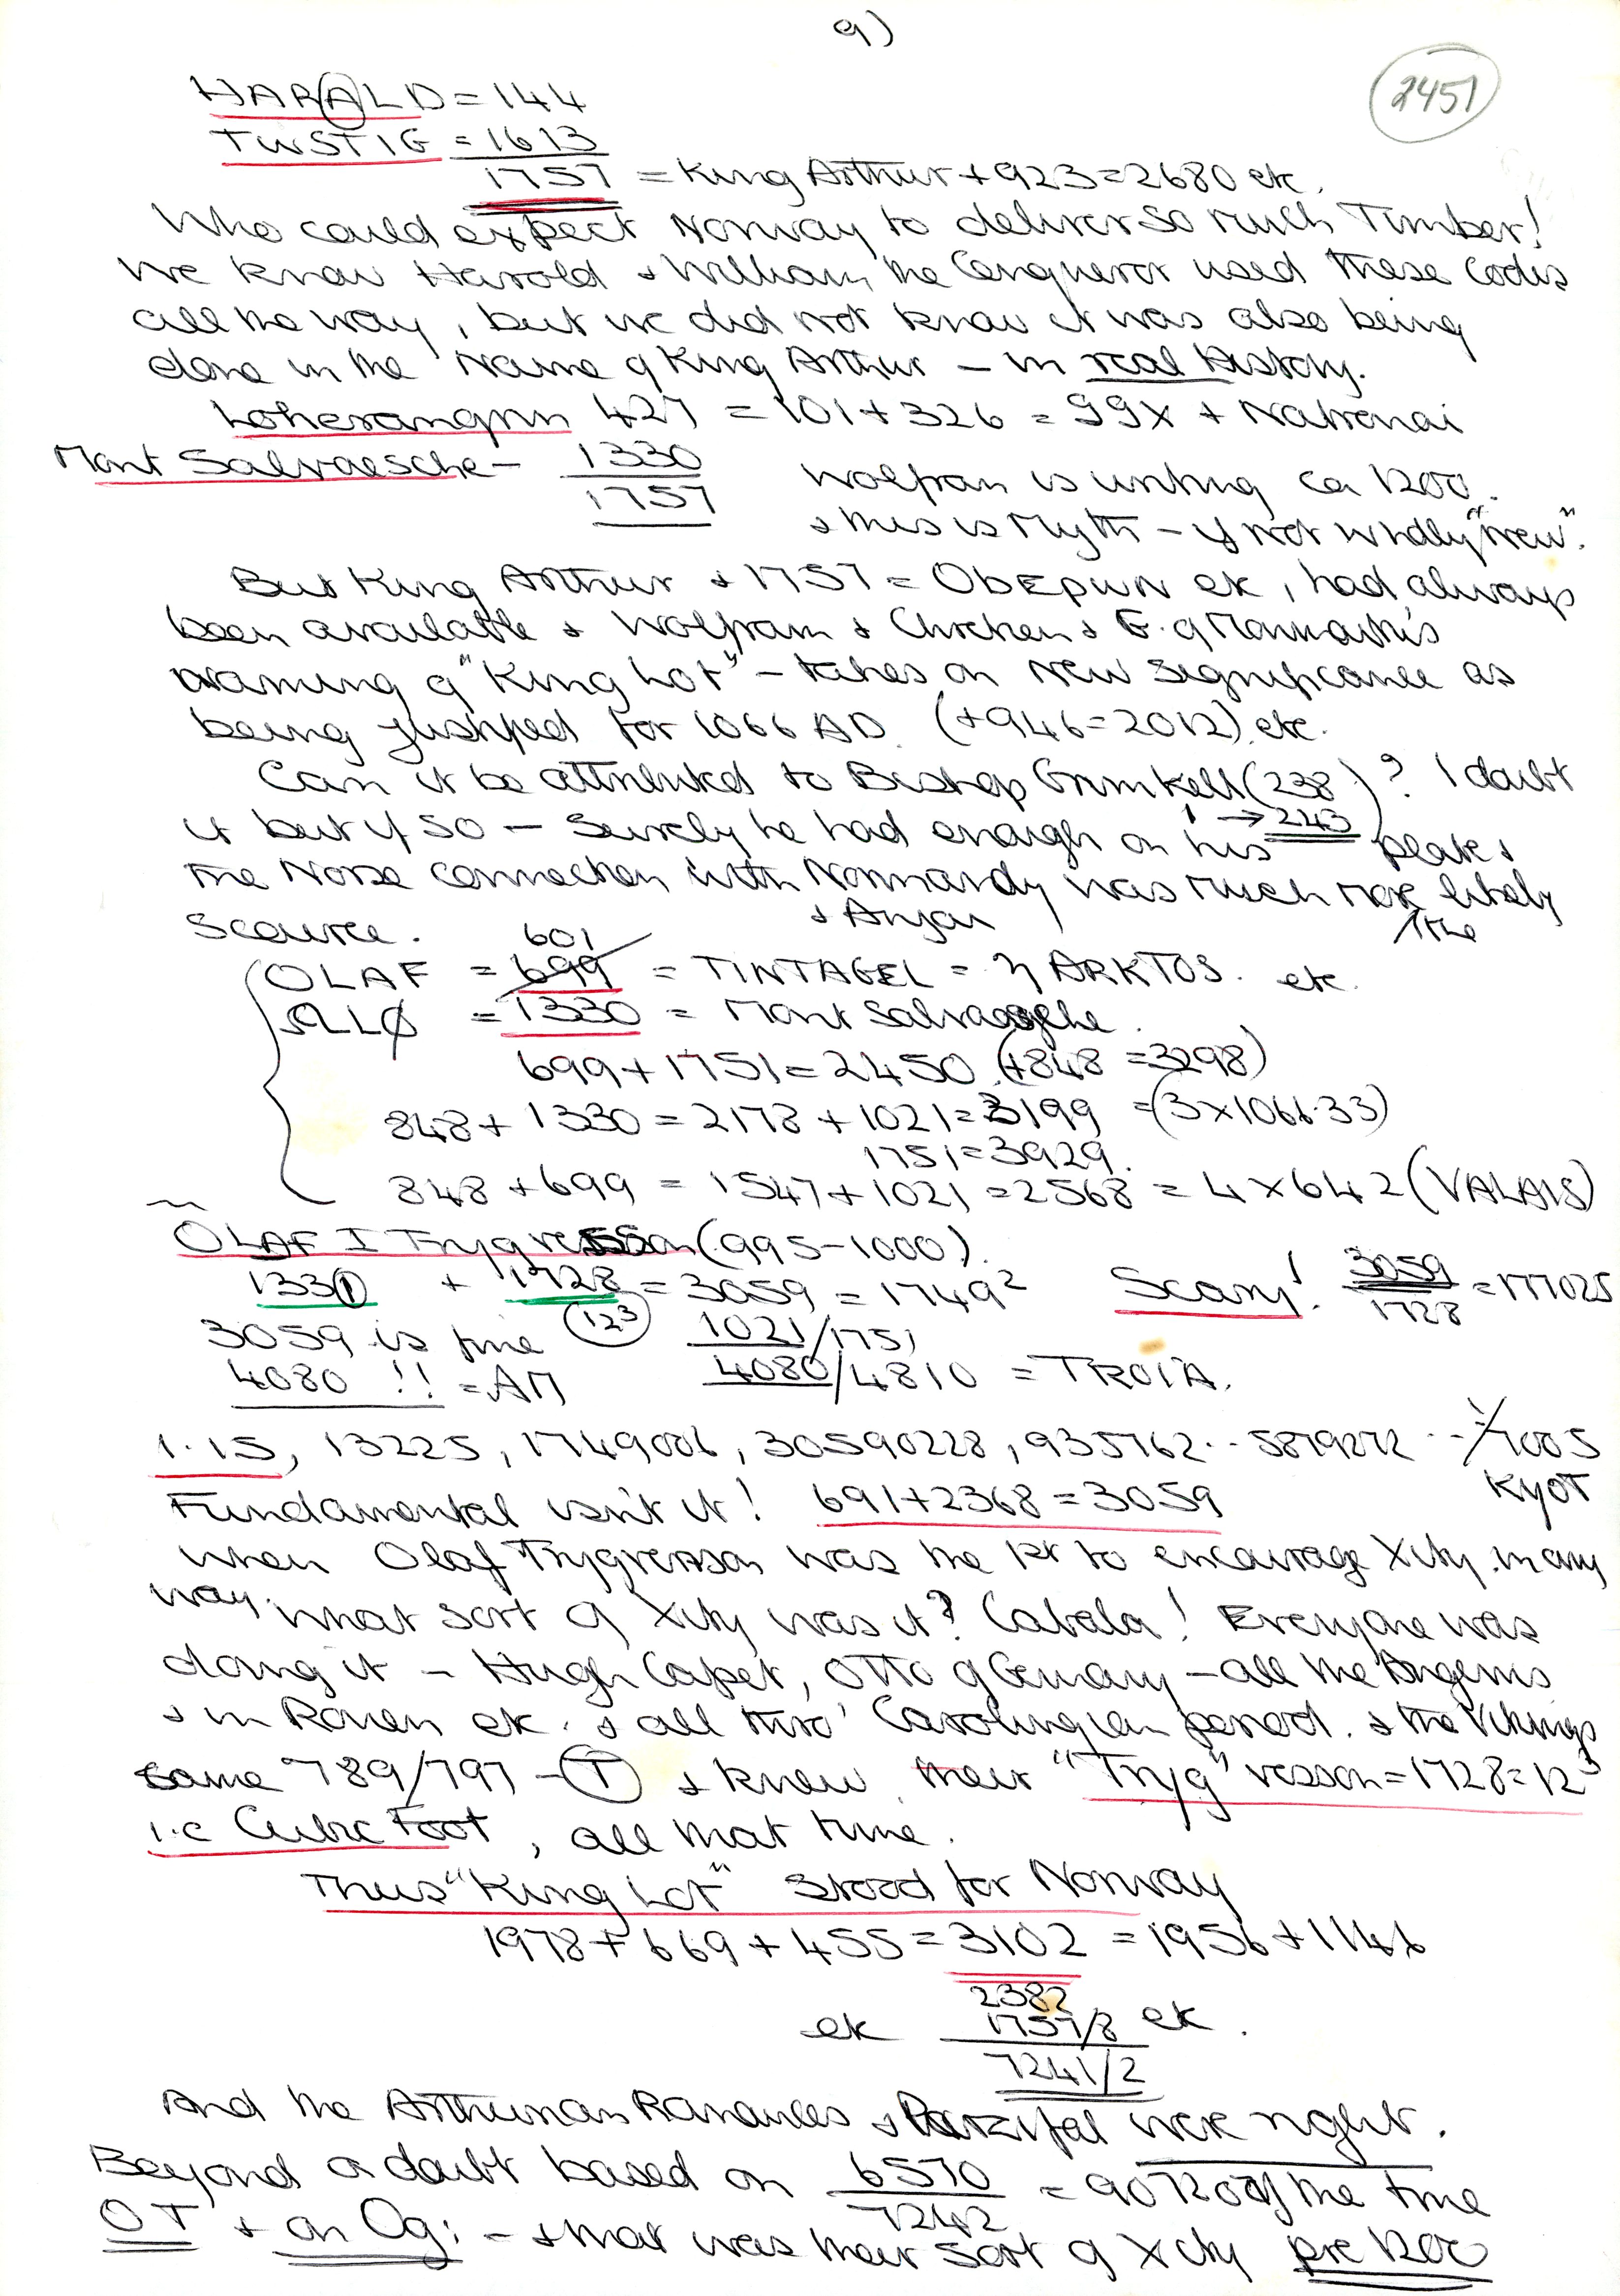 9)
2451
HARALD = 144
TWSTIG = 1613
1757 = King Arthur + 923 = 2680 etc.
Who could expect Norway to deliver so much Timber!
We know Harold & William the Conqueror used these Codes
all the way, but we did not know it was also being
done in the Name of King Arthur – in real History.
Loherangrin 427 = 101 + 326 = 99X + Natronai
Mont Salvaesche – 1330
1757
Wolfram is writing ca 1200.
& this is Myth – if not wholly "new".
But King Arthur + 1757 = ObEpwN etc, had always
been available & Wolfram & Chretien & G. of Monmouth's
naming of "King Lot" – takes on New significance as
being justified for 1066 AD. (+946 = 2012) etc.
Can it be attributed to Bishop Grimkell (238)? I doubt
→ 243
it but if so – surely he had enough on his plate &
the Norse connection with Normandy was much more likely
& Anjou
/the
Source.
601
OLAF = 699 = TINTAGEL = η ARKTOS. etc.
ΩLLØ = 1330 = Mont Salvaesche.
699 + 1751 = 2450 (+848 = 3298)
848 + 1330 = 2178 + 1021 = 3199 = (3 x 1066.33)
1751 = 3929.
848 + 699 = 1547 + 1021 = 2568 = 4 x 642 (VALAIS)
OLAF I Trygvesson (995-1000).
1331 + 1728 = 3059 = 1749² Scary! 3059
1728 = 177025
3059 is fine (12³) 1021/1751
4080 !! = AM 4080/4810 = TROIA.
1.15, 13225, 1749006, 30590228, 935762..5879272 .. 1/7005
KYOT
Fundamental isn't it! 691 + 2368 = 3059
When Olaf Trygvesson was the 1st to encourage Xity in any
way. What sort of Xity was it? Cabala! Everyone was
doing it – Hugh Capet, Otto of Germany – all the Angevins
& in Rouen etc. & all thro' Carolingian period. & the Vikings
came 789/797 – T & knew their "Tryg" vesson = 1728 = 12³
i.e Cubic Foot, all that time.
Thus "King Lot" stood for Norway
1978 + 669 + 455 = 3102 = 1956 + 1146
2382
etc 1757/8 etc.
7241/2
And the Arthurian Romances & Parzifal were right.
Beyond a doubt based on 6570
7242 = 90720 of the time
OT & an Og: – & that was their sort of Xity pre 1200